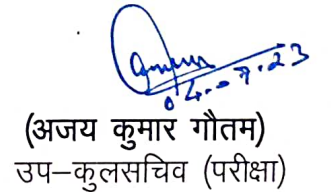 04.07.23
(अजय कुमार गौतम)
उप–कुलसचिव (परीक्षा)